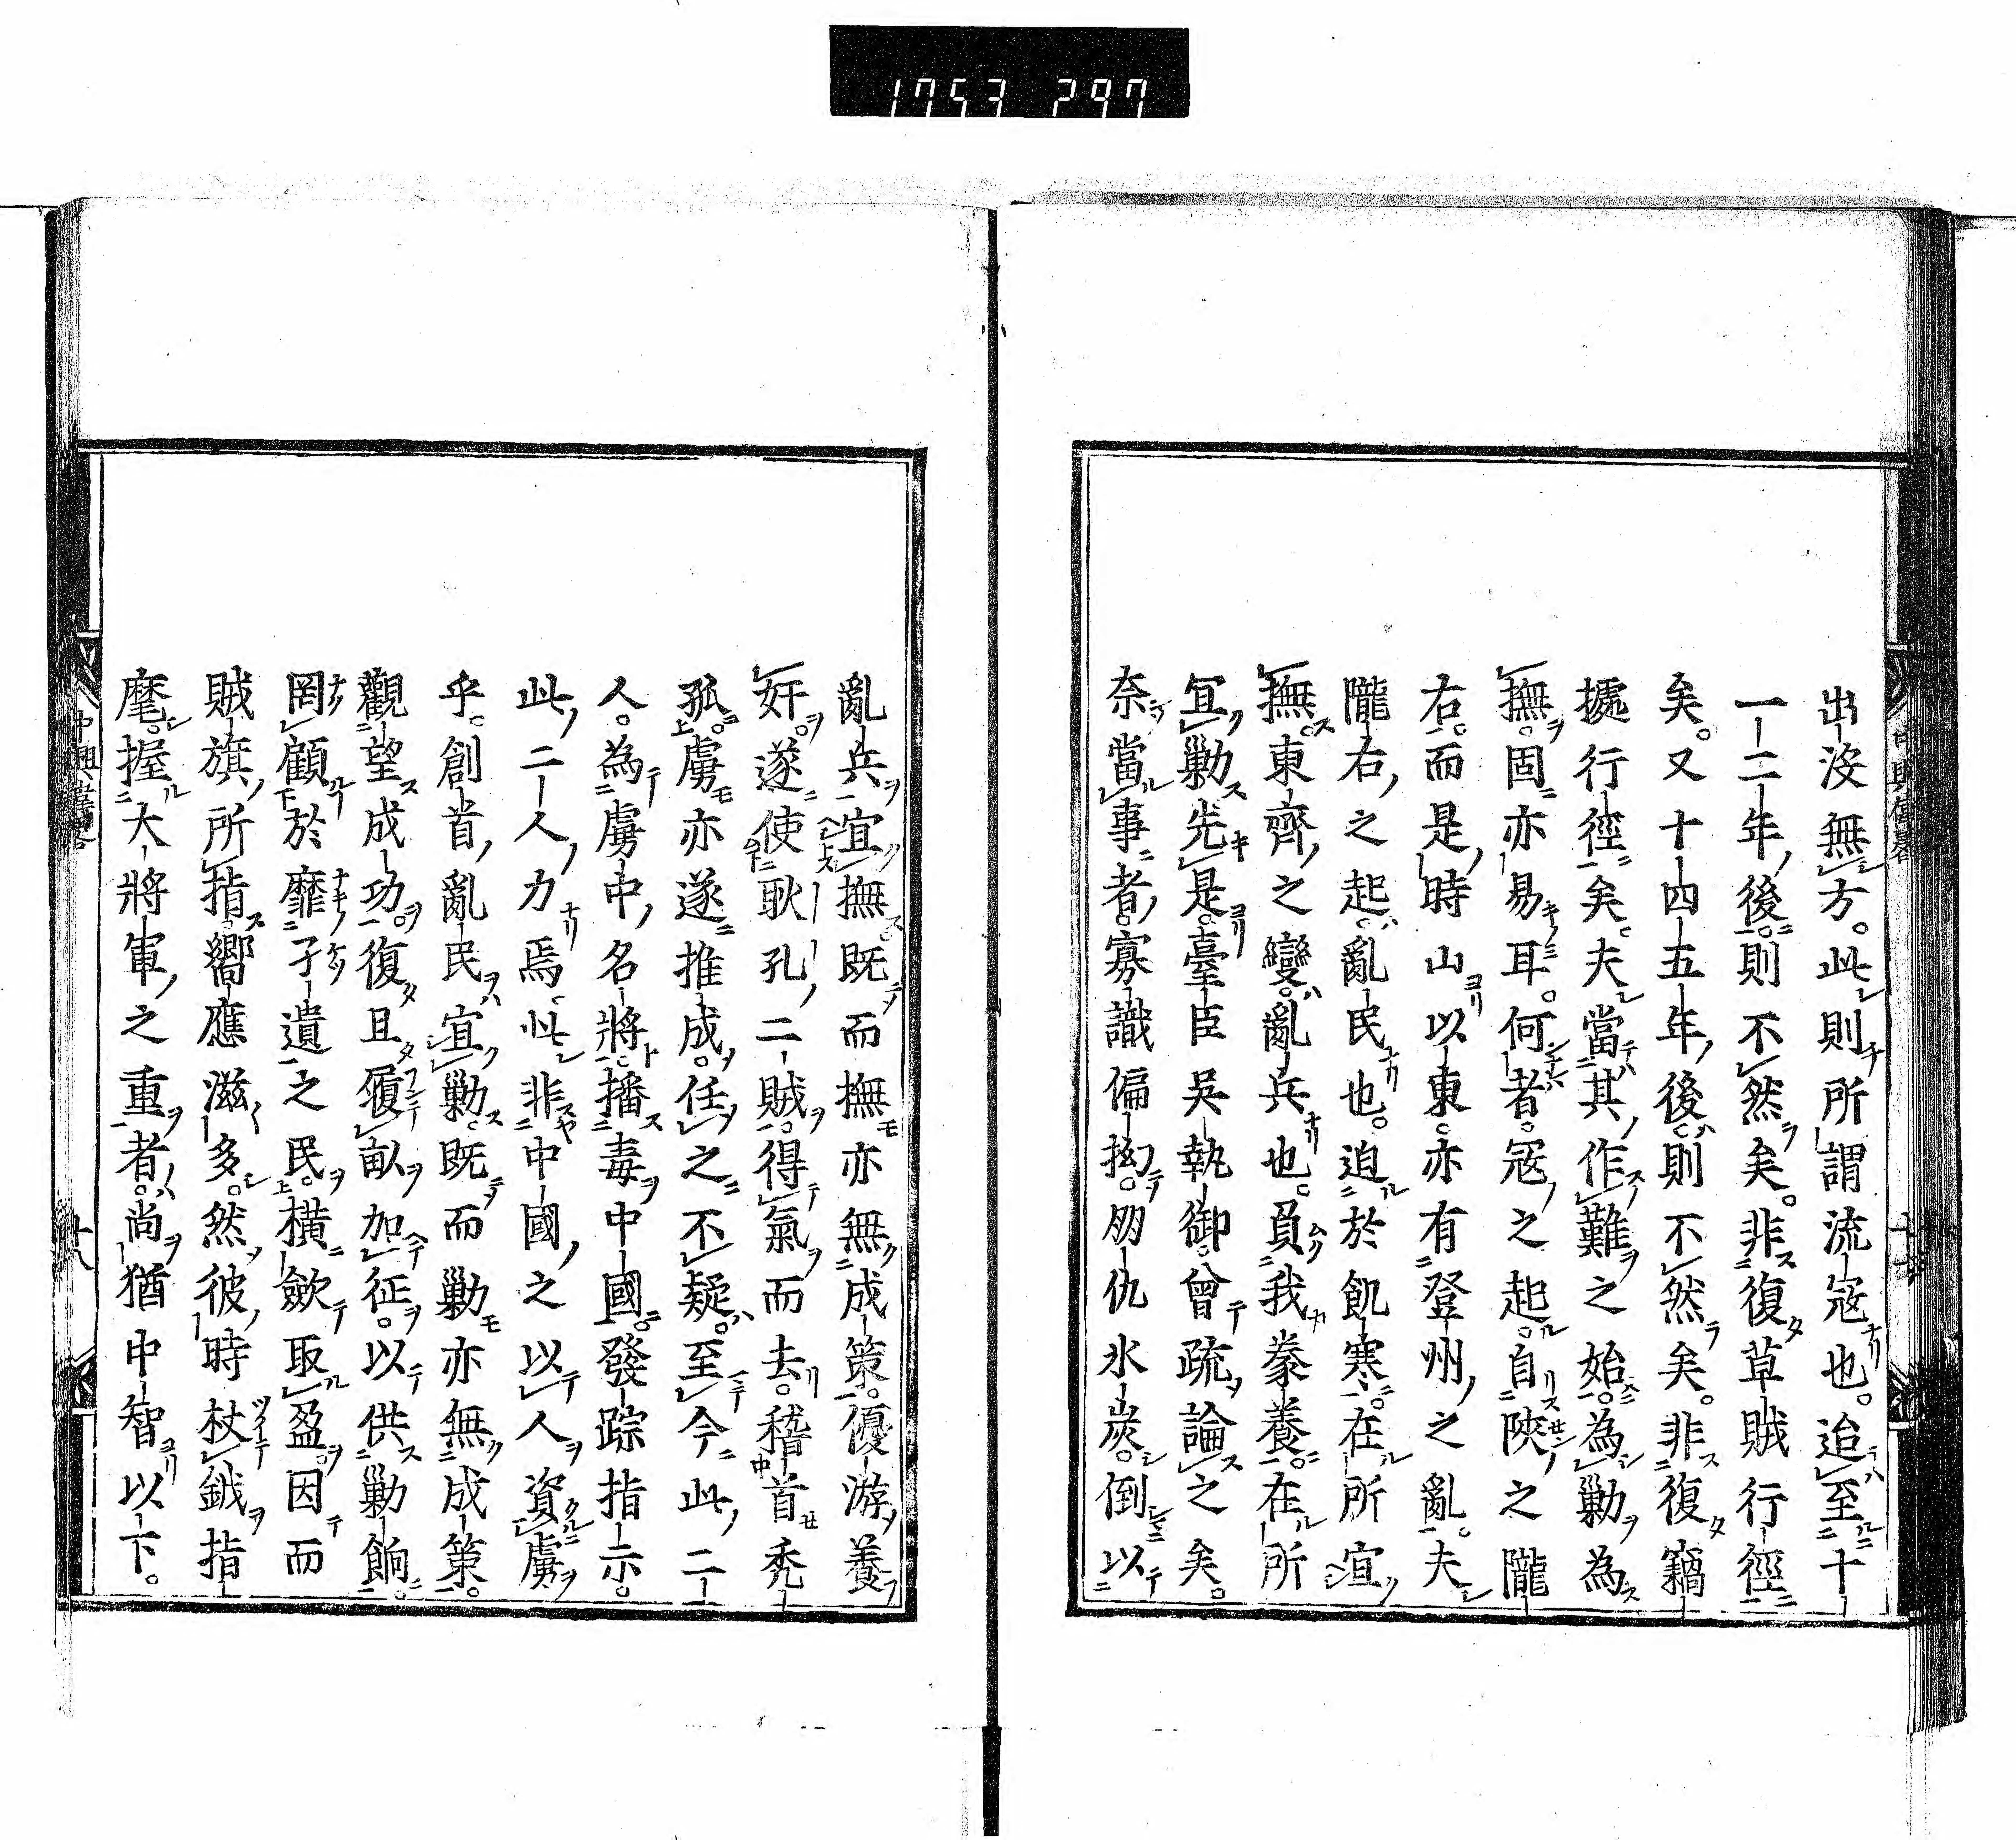 1753 297
出没無方。此則所謂流寇也。迨至十
一二年後。則不然矣。非復草賊行徑
矣。又十四五年後。則不然矣。非復竊
據行徑矣。夫當其作難之始。為勦為
撫。固亦易耳。何者。寇之起。自陝之隴
右。而是時山以東。亦有登州之亂。夫
隴右之起。亂民也。迫於飢寒。在所宜
撫。東齊之變。亂兵也。負我豢養。在所
宜勦。先是。臺臣吳執御。曾疏論之矣。
奈當事者。寡識偏拗。朋仇氷炭。倒以
亂兵宜撫。既而撫亦無成策。優游養
奸。遂使耿孔二賊。得氣而去。稽首禿
孤。虜亦遂推成。任之不疑。至今此二
人。為虜中名將。播毒中國。發踪指示。
此二人力焉。此非中國之以人資虜
乎。創首亂民宜勦。既而勦亦無成策。
觀望成功。復且履畝加征。以供勦餉。
罔顧於靡孑遺之民。橫斂取盈。因而
賊旗所指。嚮應滋多。然彼時杖鉞指
麾。握大將軍之重者。尚猶中智以下。
中興偉畧
十八